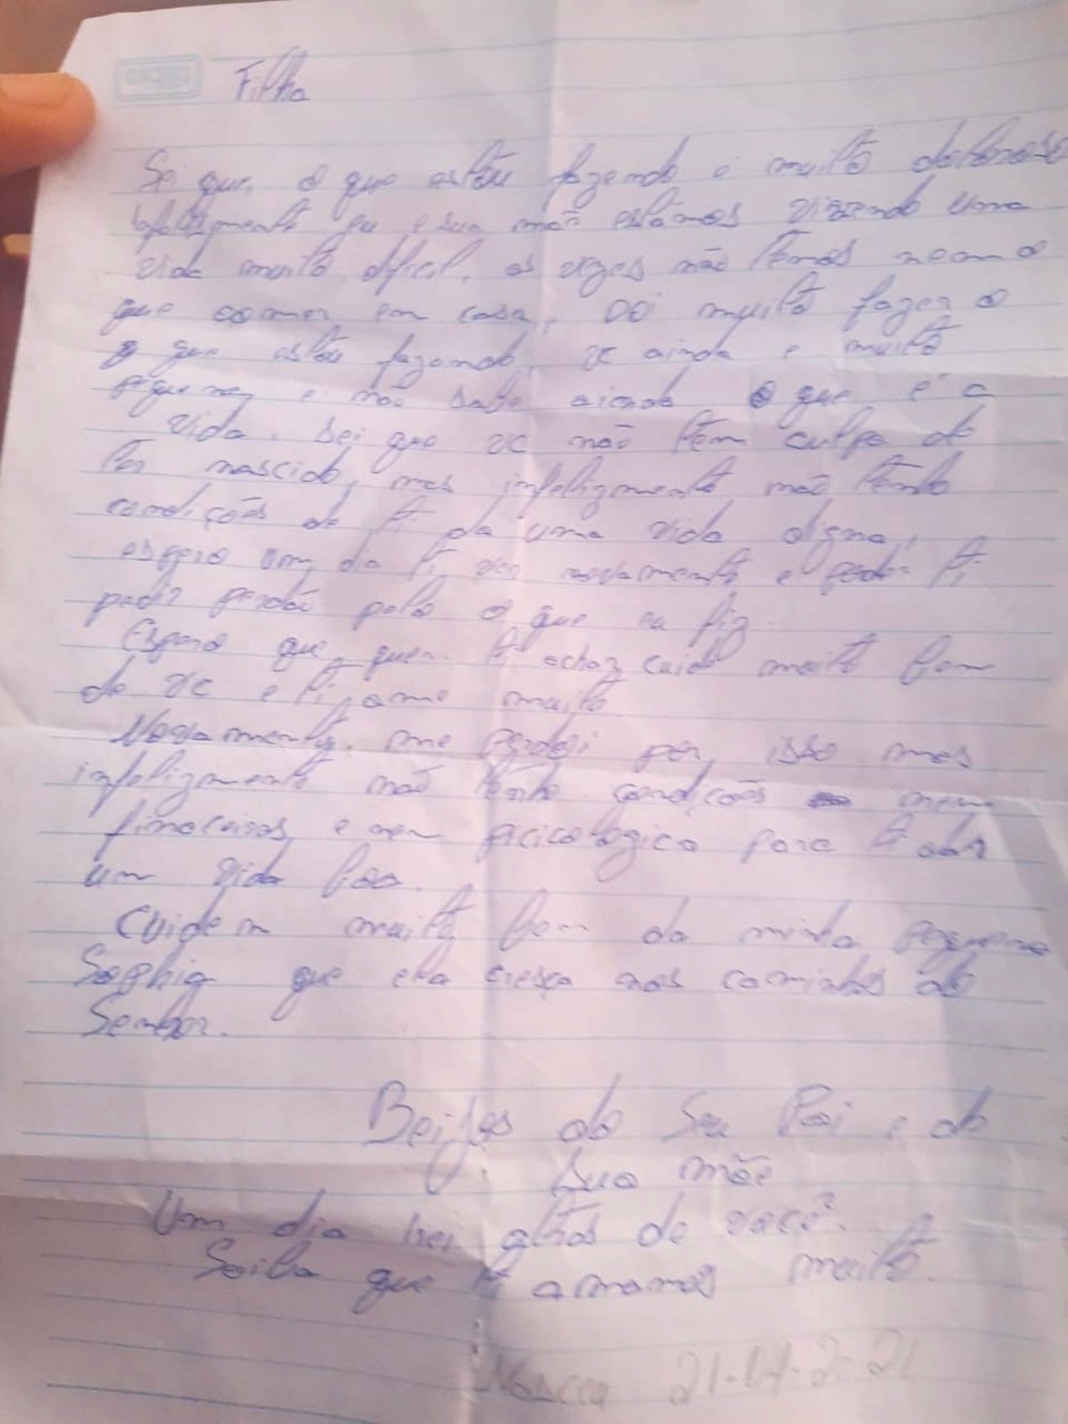 Filha
Sei que, o que estou fazendo e muito doloroso
infelizmente eu e sua mãe estamos vivendo uma
vida muito dificil. as vezes não temos nem o
que comer em casa, Doi muito fazer o
que estou fazendo, vc ainda e muito
pequena e não sabe ainda o que é a
vida. sei que vc não tem culpa de
ter nascido, mas infelizmente não tenho
condições de ti da uma vida digna,
espero um dia ti ver novamente e
pedir perdão pelo o que eu fiz.
Espero que quem te achar cuide muito bem
de vc e ti ame muito
Novamente, me perdoi por isso mas
infelizmente não tenho condições nem
financeiras e nem picicologica para te dar
um vida boa.
Cuidem muito bem da minha pequena
Sophia que ela cresça nos caminhos do
Senhor.
Beijos do Seu Pai e da
Sua mãe
Um dia irei atras de você.
Saiba que te amamos muito.
Nasceu 21-